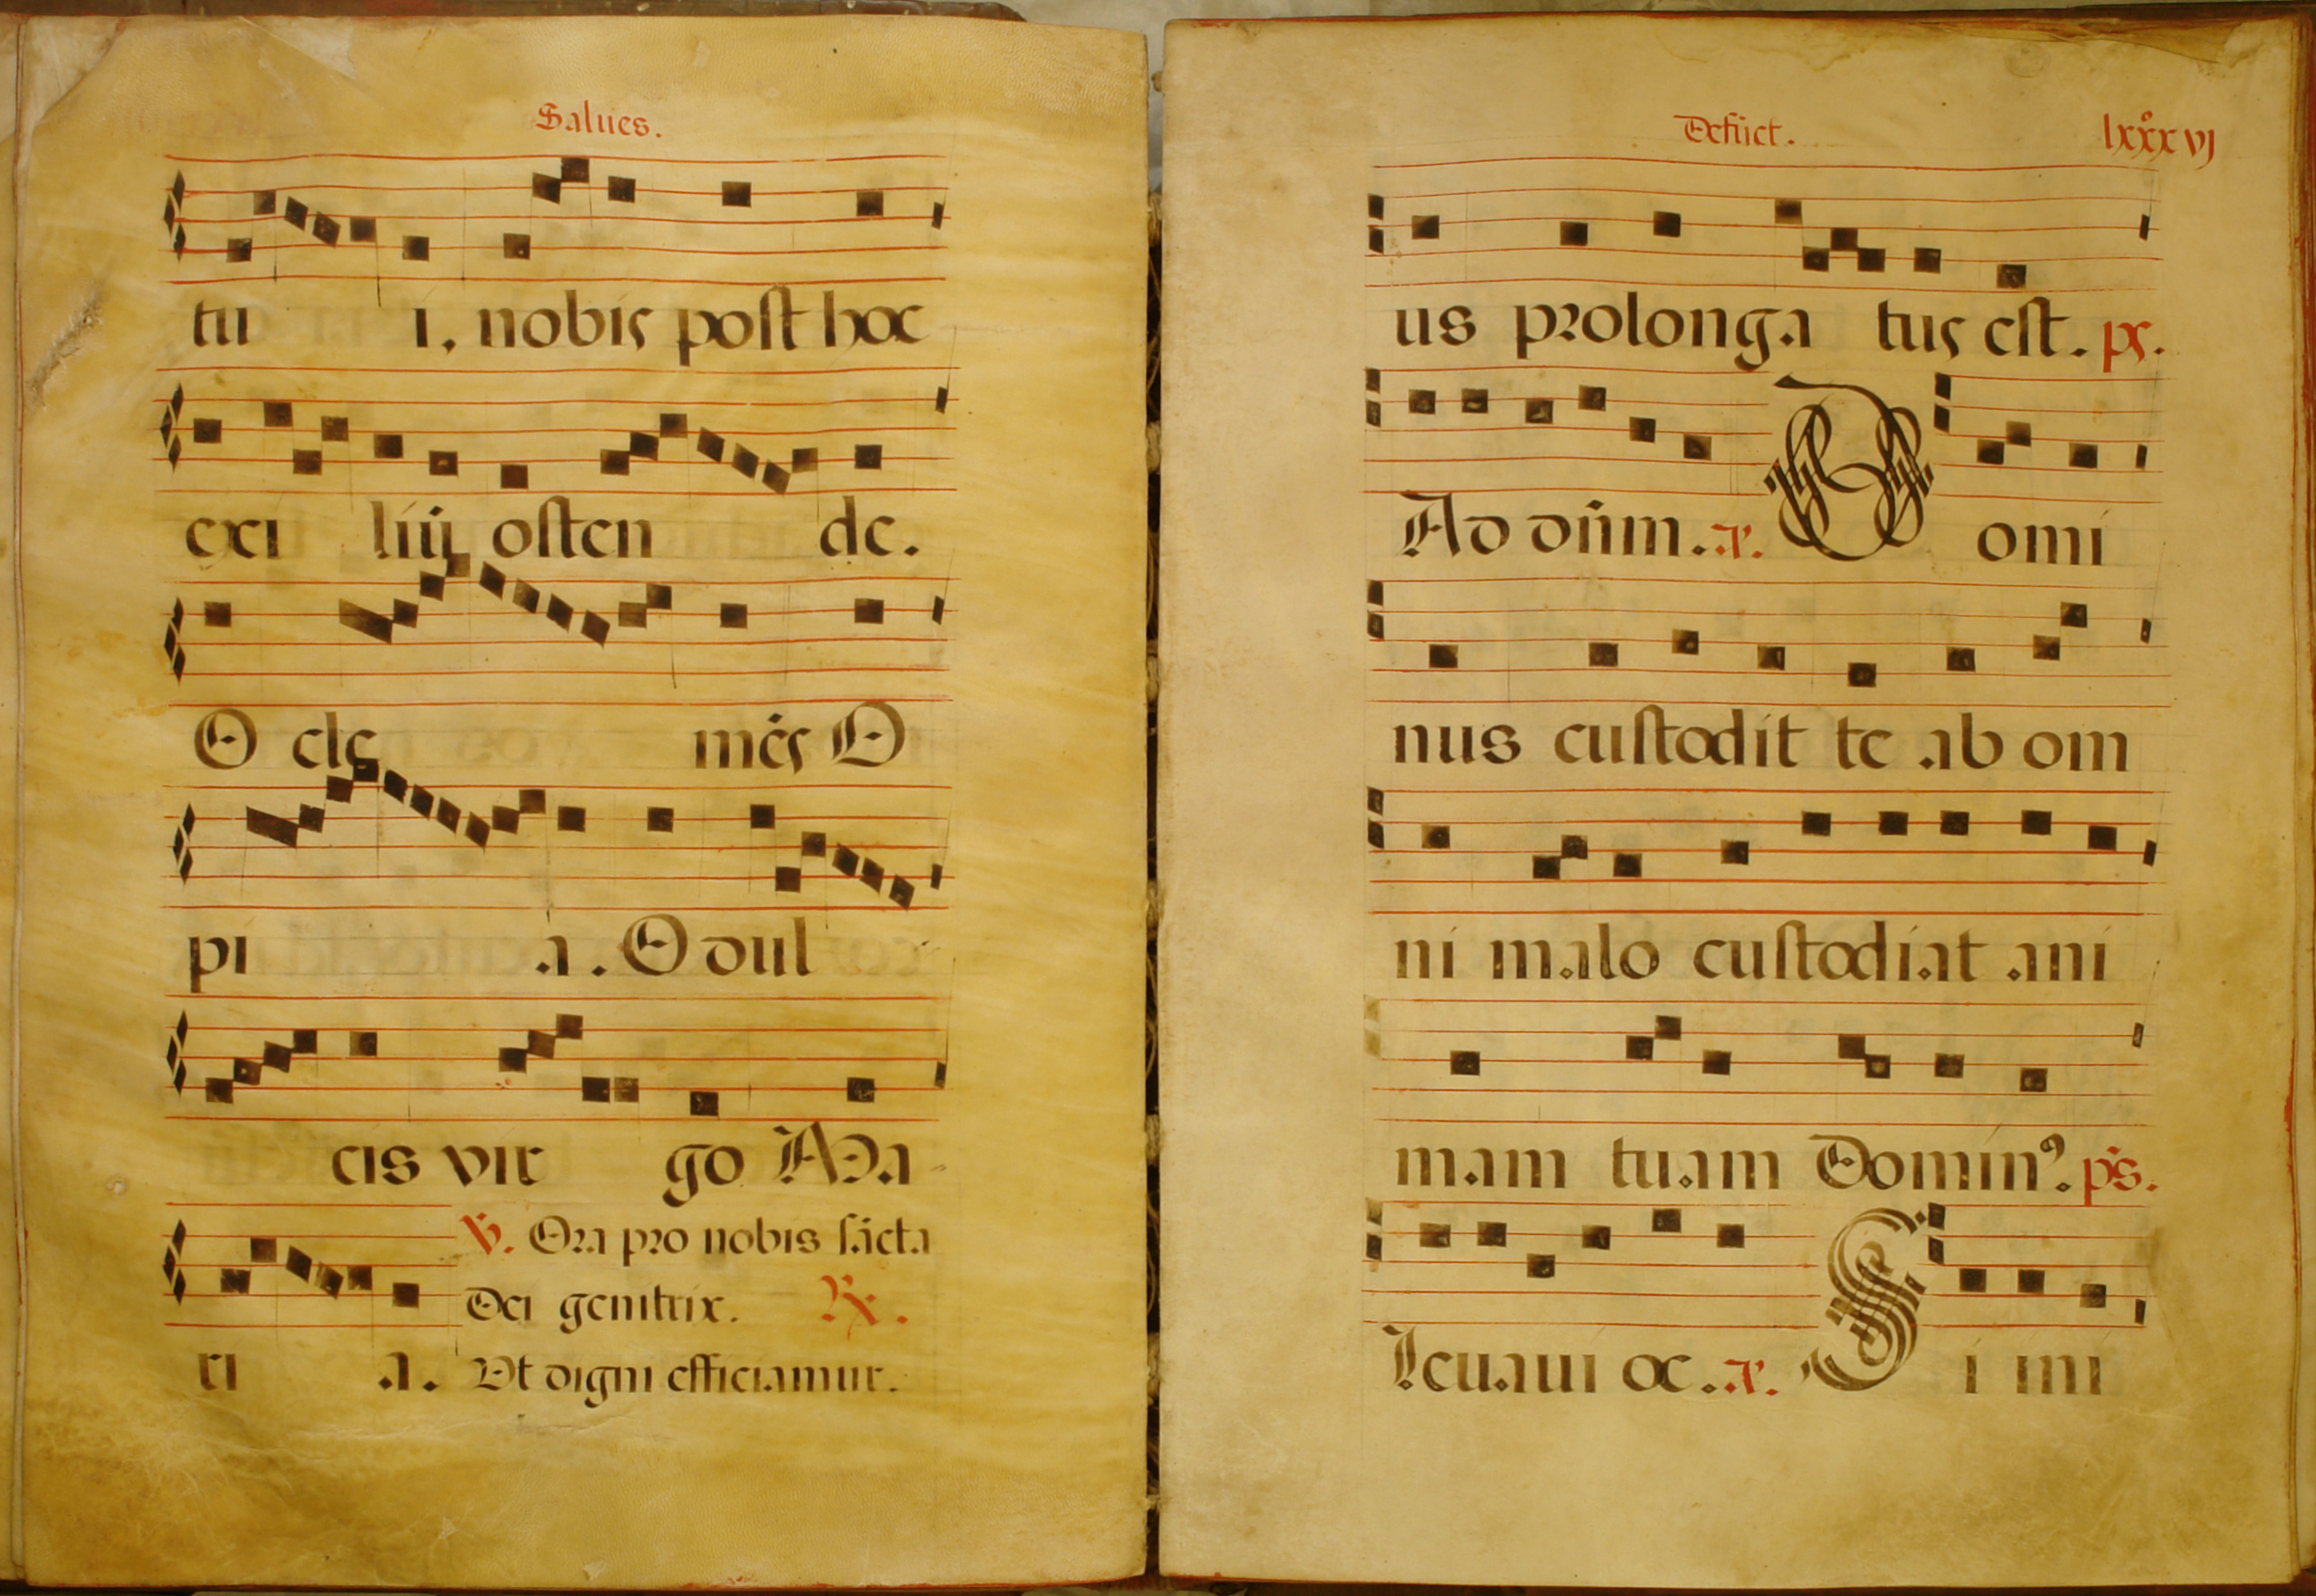 Salues.
tu i. nobis post hoc
exi liũ osten de.
O cle mẽs O
pi a. O dul
cis vir go Ma
ri a. ℣. Ora pro nobis sãcta
Dei genitrix. ℟.
Vt digni efficiamur.
Defũct. lxxxvj
us prolonga tus est. ps.
Ad dñm. a. Domi
nus custodit te ab om
ni malo custodiat ani
mam tuam Dominꝰ. ps.
Leuaui oc. a. Si ini